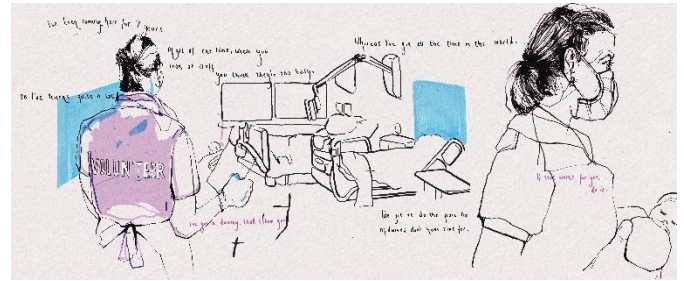 I've been coming here for 7 years
so I've learnt quite a lot.
VOLUNTEER
A lot of the time, when you
look at staff
you think they're too busy.
Whereas I've got all the time in the world.
I've got a dummy, that'll have you
We get to do the parts the
nurses don't have time for.
If that works for you,
do it.